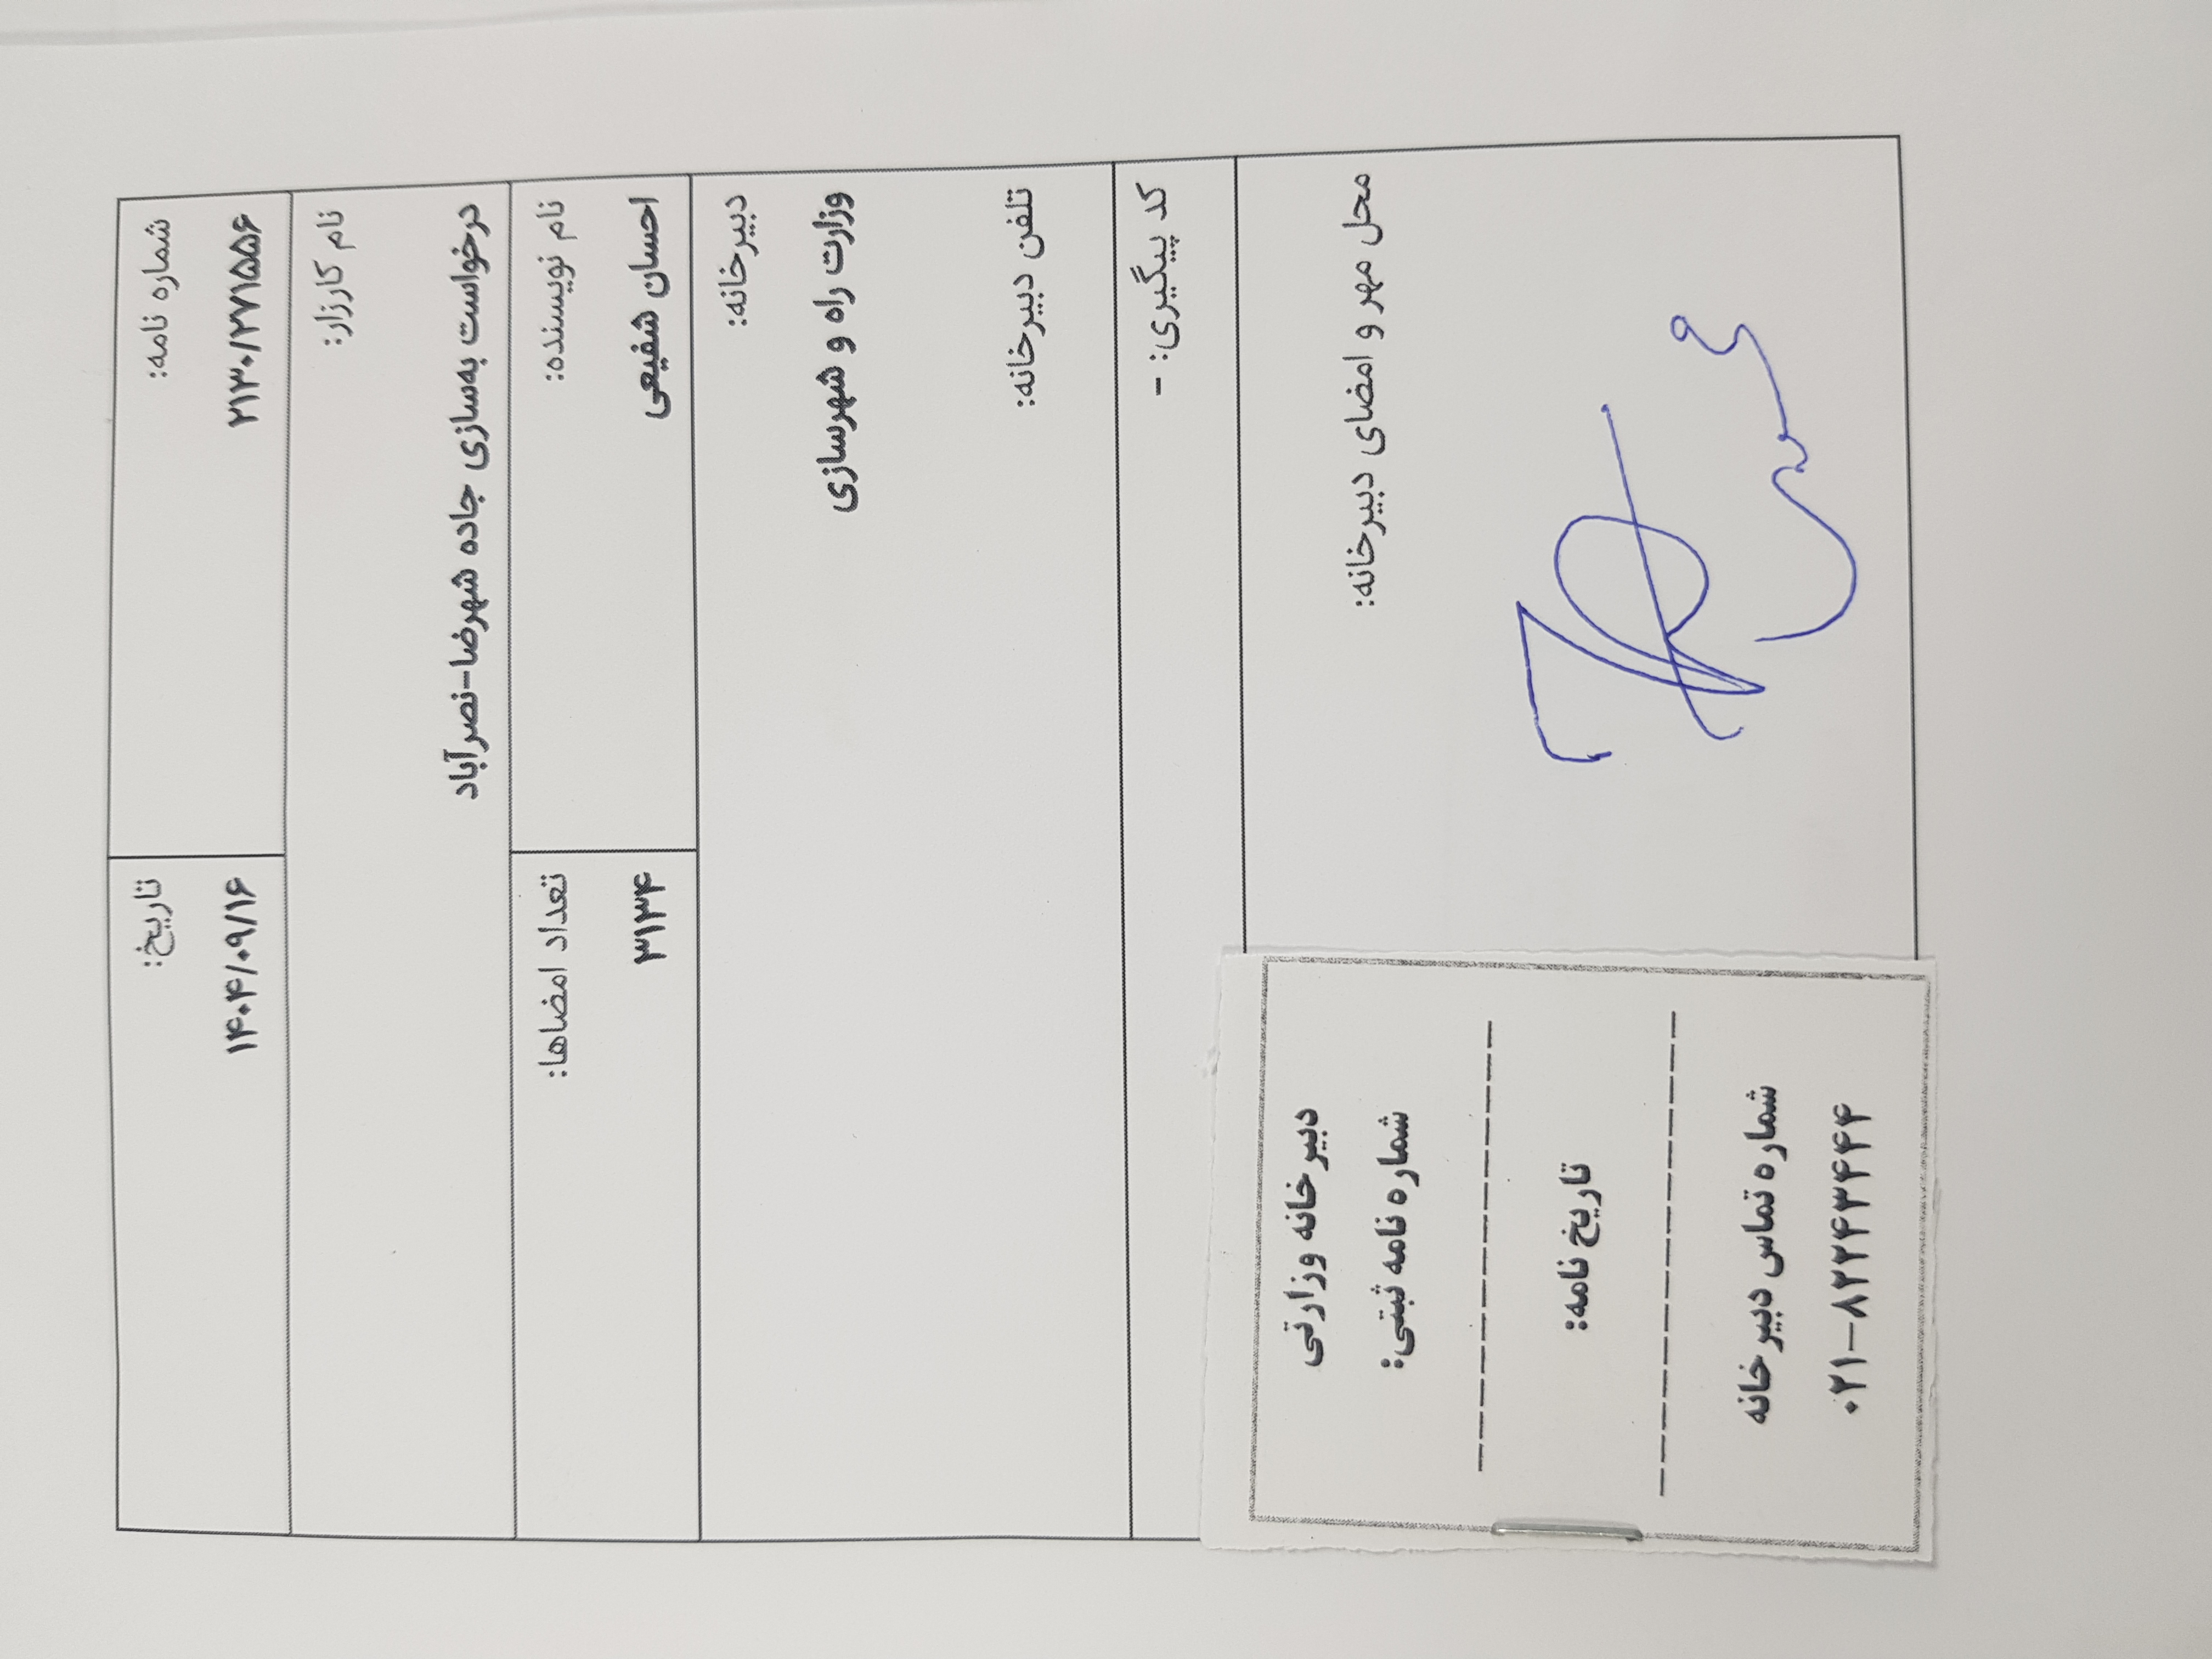 شماره نامه:
۲۱۳۰/۲۷۱۵۵۶
تاریخ:
۱۴۰۴/۰۹/۱۶
نام کارزار:
درخواست به‌سازی جاده شهرضا-نصرآباد
نام نویسنده:
احسان شفیعی
تعداد امضاها:
۳۱۳۴
دبیرخانه:
وزارت راه و شهرسازی
تلفن دبیرخانه:
کد پیگیری: -
محل مهر و امضای دبیرخانه:
دبیرخانه وزارتی
شماره نامه ثبتی:
تاریخ نامه:
شماره تماس دبیرخانه
۰۲۱-۸۲۲۴۳۴۴۴